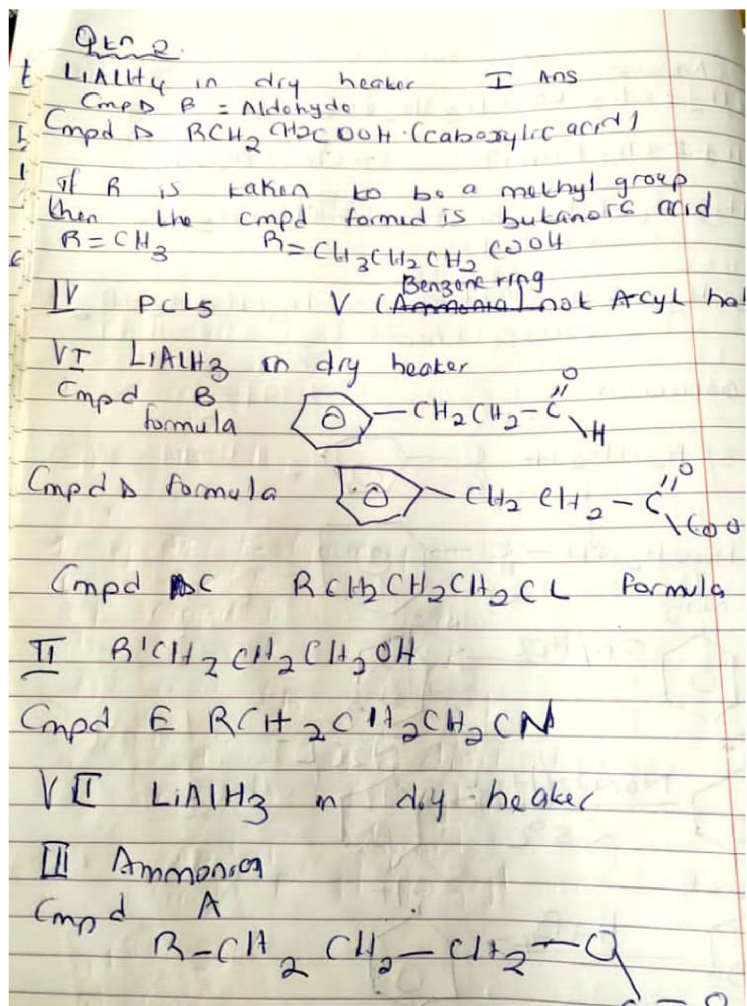 Qtn 2.
LiALH4 in dry beaker I Ans
Cmpd B = Aldehyde
Cmpd D RCH2 CH2COOH (caboxylic acid)
If R is taken to be a methyl group
then the cmpd formed is butanoic acid
R = CH3 R = CH3CH2CH2COOH
Benzene ring
IV PCL5 V (Ammonia) not Acyl hal
VI LiAlH3 in dry beaker
Cmpd B O
formula -CH2CH2-C H
Cmpd D formula -CH2CH2-C O
Cmpd C RCH2CH2CH2CL formula
II R'CH2CH2CH2OH
Cmpd E RCH2CH2CH2CN
VII LiAlH3 in dry beaker
III Ammonia
Cmpd A
R-CH2CH2-CH2-O